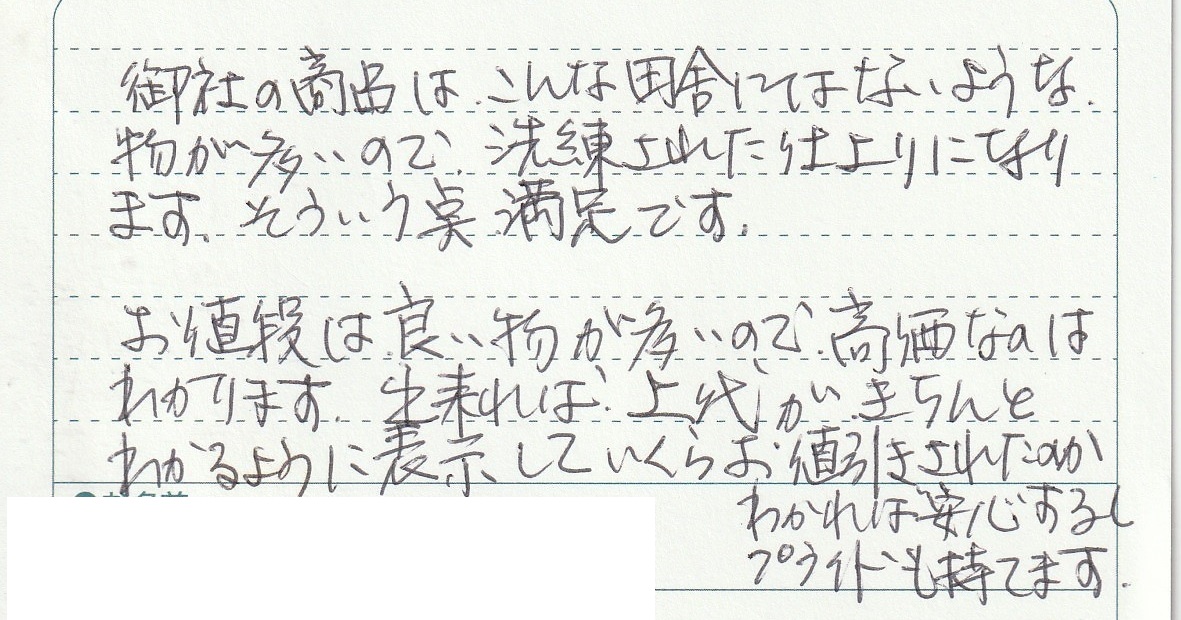 御社の商品は、こんな田舎にはないような、
物が多いので、洗練された仕上りになり
ます。そういう点、満足です。
お値段は、良い物が多いので、高価なのは
わかります。出来れば、上代が、きちんと
わかるように表示していくらお値引きされたのか
わかれば安心するし
プライドも持てます。